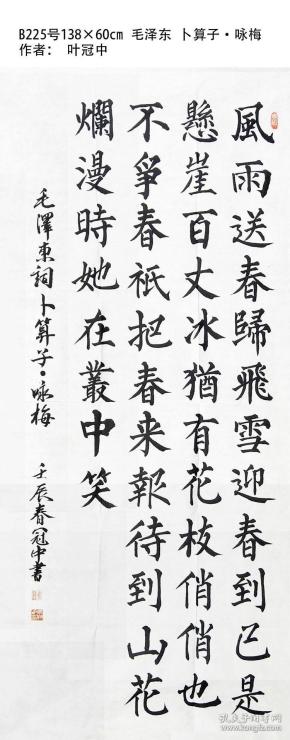 B225号138×60cm 毛泽东 卜算子·咏梅
作者： 叶冠中
風雨送春歸飛雪迎春到已是
懸崖百丈冰猶有花枝俏俏也
不爭春祇把春来報待到山花
爛漫時她在叢中笑
毛澤東詞卜算子·咏梅 壬辰春冠中書